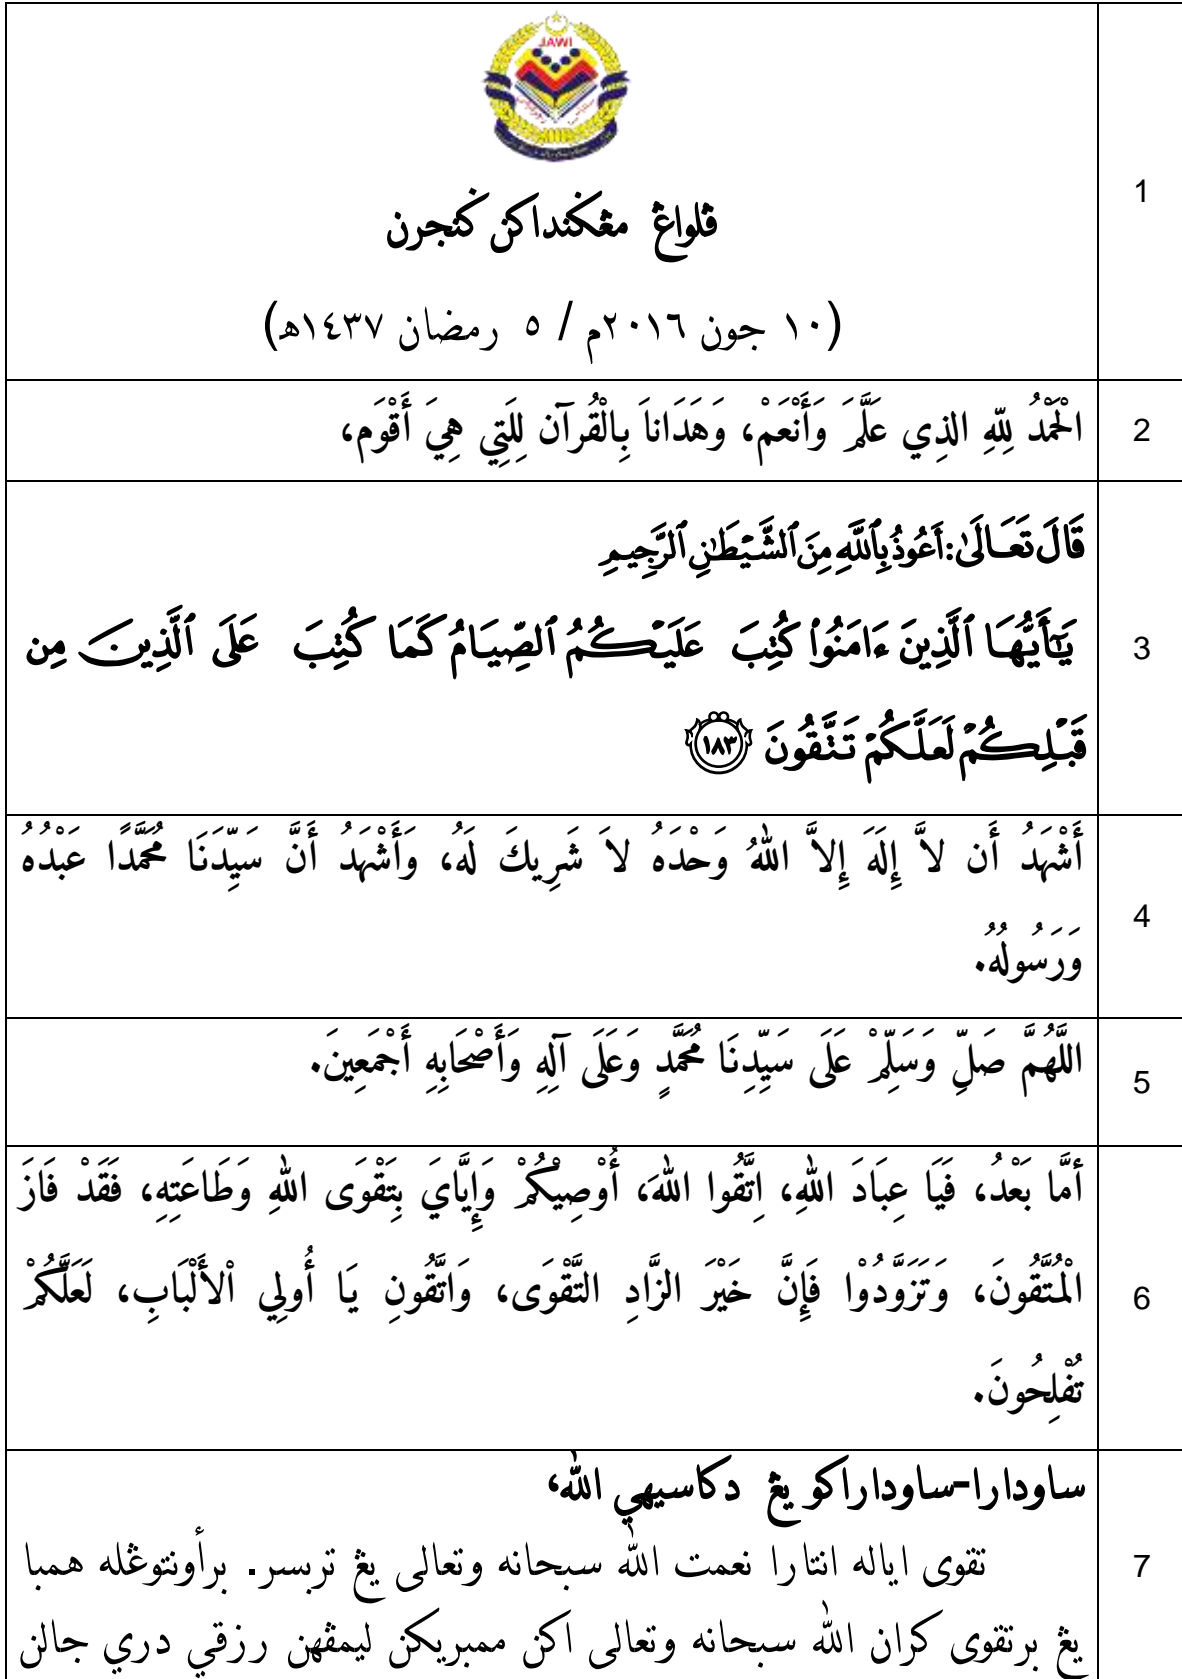 JAWI
ڤلواڠ مڠݢنداکن ݢنجرن
(١٠ جون ٢٠١٦م / ٥ رمضان ١٤٣٧ه)
1
الْحَمْدُ لِلّهِ الذِي عَلَّمَ وَأَنْعَمْ، وَهَدَاناَ بِالْقُرآن لِلَتِي هِيَ أَقْوَم،
2
قَالَ تَعَالَىٰ: أَعُوذُ بِٱللَّهِ مِنَ ٱلشَّيْطَٰنِ ٱلرَّجِيمِ
يَٰٓأَيُّهَا ٱلَّذِينَ ءَامَنُواْ كُتِبَ عَلَيْكُمُ ٱلصِّيَامُ كَمَا كُتِبَ عَلَى ٱلَّذِينَ مِن
3
قَبْلِكُمْ لَعَلَّكُمْ تَتَّقُونَ ١٨٣
أَشْهَدُ أَن لاَّ إِلَهَ إِلاَّ اللهُ وَحْدَهُ لاَ شَرِيكَ لَهُ، وَأَشْهَدُ أَنَّ سَيِّدَنَا مُحَمَّدًا عَبْدُه
4
وَرَسُولُهُ.
اللَّهُمَّ صَلِّ وَسَلِّمْ عَلَى سَيِّدِنَا مُحَمَّدٍ وَعَلَى آلِهِ وَأَصْحَابِهِ أَجْمَعِينَ.
5
أَمَّا بَعْدُ، فَيَا عِبَادَ اللهِ، اِتَّقُوا اللهَ، أُوْصِيْكُمْ وَإِيَّايَ بِتَقْوَى اللهِ وَطَاعَتِهِ، فَقَدْ فَازَ
الْمُتَّقُونَ، وَتَزَوَّدُوْا فَإِنَّ خَيْرَ الزَّادِ التَّقْوَى، وَاتَّقُونِ يَا أُولِي اْلأَلْبَابِ، لَعَلَّكُمْ
6
تُفْلِحُونَ.
ساودارا-ساوداراکو يڠ دکاسيهي الله،
تقوى اياله انتارا نعمت الله سبحانه وتعالى يڠ تربسر. برأونتوڠله همبا
7
يڠ برتقوى کران الله سبحانه وتعالى اکن ممبريکن ليمڤهن رزقي دري جالن